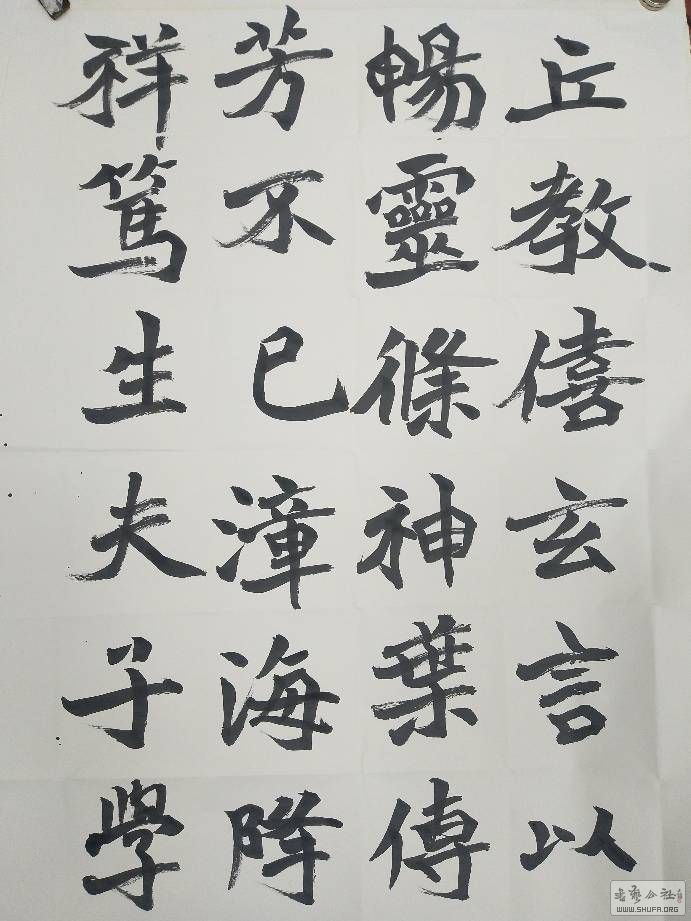 丘教僖玄言以
暢靈條神葉傳
芳不已漳海降
祥篤生夫子學
WWW.SHUFA.ORG